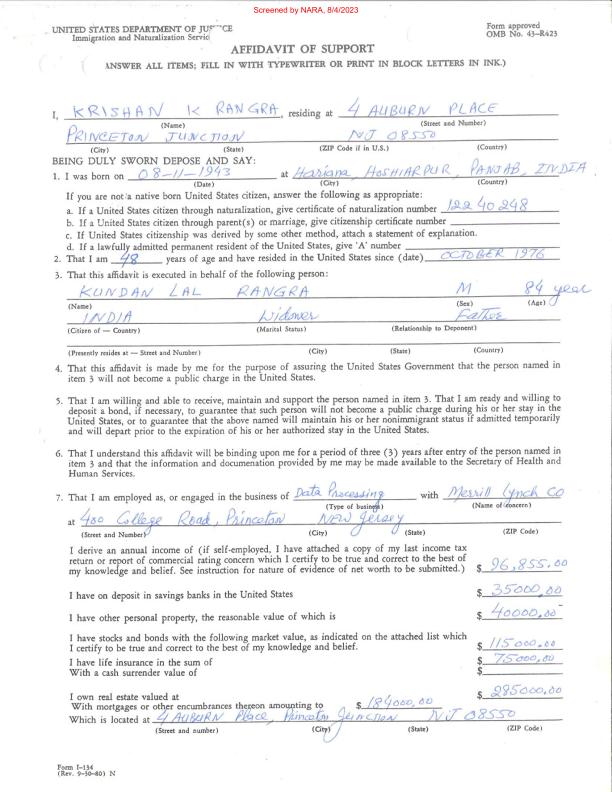 Screened by NARA, 8/4/2023
UNITED STATES DEPARTMENT OF JUSTICE
Immigration and Naturalization Service
Form approved
OMB No. 43-R423
AFFIDAVIT OF SUPPORT
(ANSWER ALL ITEMS; FILL IN WITH TYPEWRITER OR PRINT IN BLOCK LETTERS IN INK.)
I, KRISHAN K RANGRA, residing at 4 AUBURN PLACE
(Name) (Street and Number)
PRINCETON JUNCTION NJ 08550
(City) (State) (ZIP Code if in U.S.) (Country)
BEING DULY SWORN DEPOSE AND SAY:
1. I was born on 08-11-1943 at Hariana, HOSHIARPUR, PANJAB, INDIA
(Date) (City) (Country)
If you are not a native born United States citizen, answer the following as appropriate:
a. If a United States citizen through naturalization, give certificate of naturalization number 12240248
b. If a United States citizen through parent(s) or marriage, give citizenship certificate number
c. If United States citizenship was derived by some other method, attach a statement of explanation.
d. If a lawfully admitted permanent resident of the United States, give 'A' number
2. That I am 48 years of age and have resided in the United States since (date) OCTOBER 1976
3. That this affidavit is executed in behalf of the following person:
KUNDAN LAL RANGRA M 84 year
(Name) (Sex) (Age)
INDIA Widower Father
(Citizen of — Country) (Marital Status) (Relationship to Deponent)
(Presently resides at — Street and Number) (City) (State) (Country)
4. That this affidavit is made by me for the purpose of assuring the United States Government that the person named in
item 3 will not become a public charge in the United States.
5. That I am willing and able to receive, maintain and support the person named in item 3. That I am ready and willing to
deposit a bond, if necessary, to guarantee that such person will not become a public charge during his or her stay in the
United States, or to guarantee that the above named will maintain his or her nonimmigrant status if admitted temporarily
and will depart prior to the expiration of his or her authorized stay in the United States.
6. That I understand this affidavit will be binding upon me for a period of three (3) years after entry of the person named in
item 3 and that the information and documentation provided by me may be made available to the Secretary of Health and
Human Services.
7. That I am employed as, or engaged in the business of Data Processing with Merrill Lynch CO
(Type of business) (Name of concern)
at 400 College Road, Princeton NEW Jersey
(Street and Number) (City) (State) (ZIP Code)
I derive an annual income of (if self-employed, I have attached a copy of my last income tax
return or report of commercial rating concern which I certify to be true and correct to the best of
my knowledge and belief. See instruction for nature of evidence of net worth to be submitted.) $ 96,855.00
I have on deposit in savings banks in the United States $ 35000.00
I have other personal property, the reasonable value of which is $ 40000.00
I have stocks and bonds with the following market value, as indicated on the attached list which
I certify to be true and correct to the best of my knowledge and belief. $ 115000.00
I have life insurance in the sum of $ 75000.00
With a cash surrender value of $
I own real estate valued at $ 285000.00
With mortgages or other encumbrances thereon amounting to $ 184000.00
Which is located at 4 AUBURN Place, Princeton Junction NJ 08550
(Street and number) (City) (State) (ZIP Code)
Form I-134
(Rev. 9-30-80) N